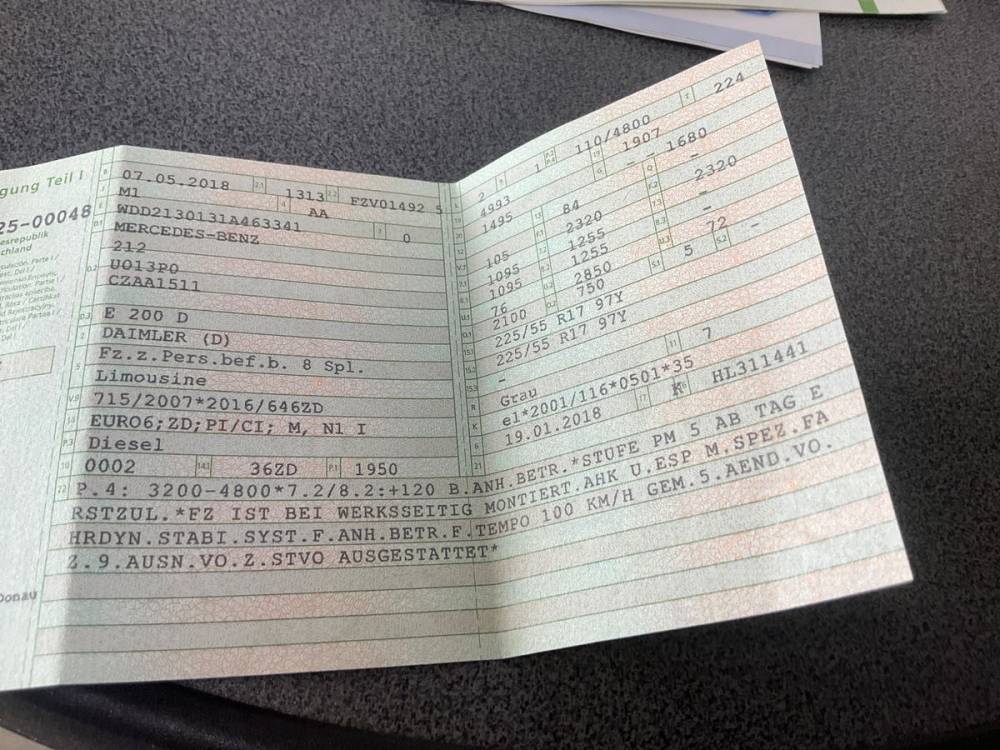 gung Teil I
25-00048
esrepublik
chland
Donau
07.05.2018 2.1 1313 2.2 FZV01492 5
M1 4 AA
WDD2130131A463341 3 0
MERCEDES-BENZ
212
UO13P0
CZAA1511
E 200 D
DAIMLER (D)
Fz.z.Pers.bef.b. 8 Spl.
Limousine
715/2007*2016/646ZD
EURO6;ZD;PI/CI; M, N1 I
Diesel
0002 14.1 36ZD P.1 1950
2 9 1 P.2 P.4 110/4800 T 224
4993 19 1907
1495 - G 1680
13 84 Q -
105 2320 F.2 2320
1095 1255 -
1095 1255 -
76 2850 U.3 72
2100 750 S.1 5 S.2 -
225/55 R17 97Y
225/55 R17 97Y
-
Grau 11 7
e1*2001/116*0501*35
19.01.2018 17 K 16 HL311441
22 P.4: 3200-4800*7.2/8.2:+120 B.ANH.BETR.*STUFE PM 5 AB TAG E
RSTZUL.*FZ IST BEI WERKSSEITIG MONTIERT.AHK U.ESP M.SPEZ.FA
HRDYN.STABI.SYST.F.ANH.BETR.F.TEMPO 100 KM/H GEM.5.AEND.VO.
Z.9.AUSN.VO.Z.STVO AUSGESTATTET*